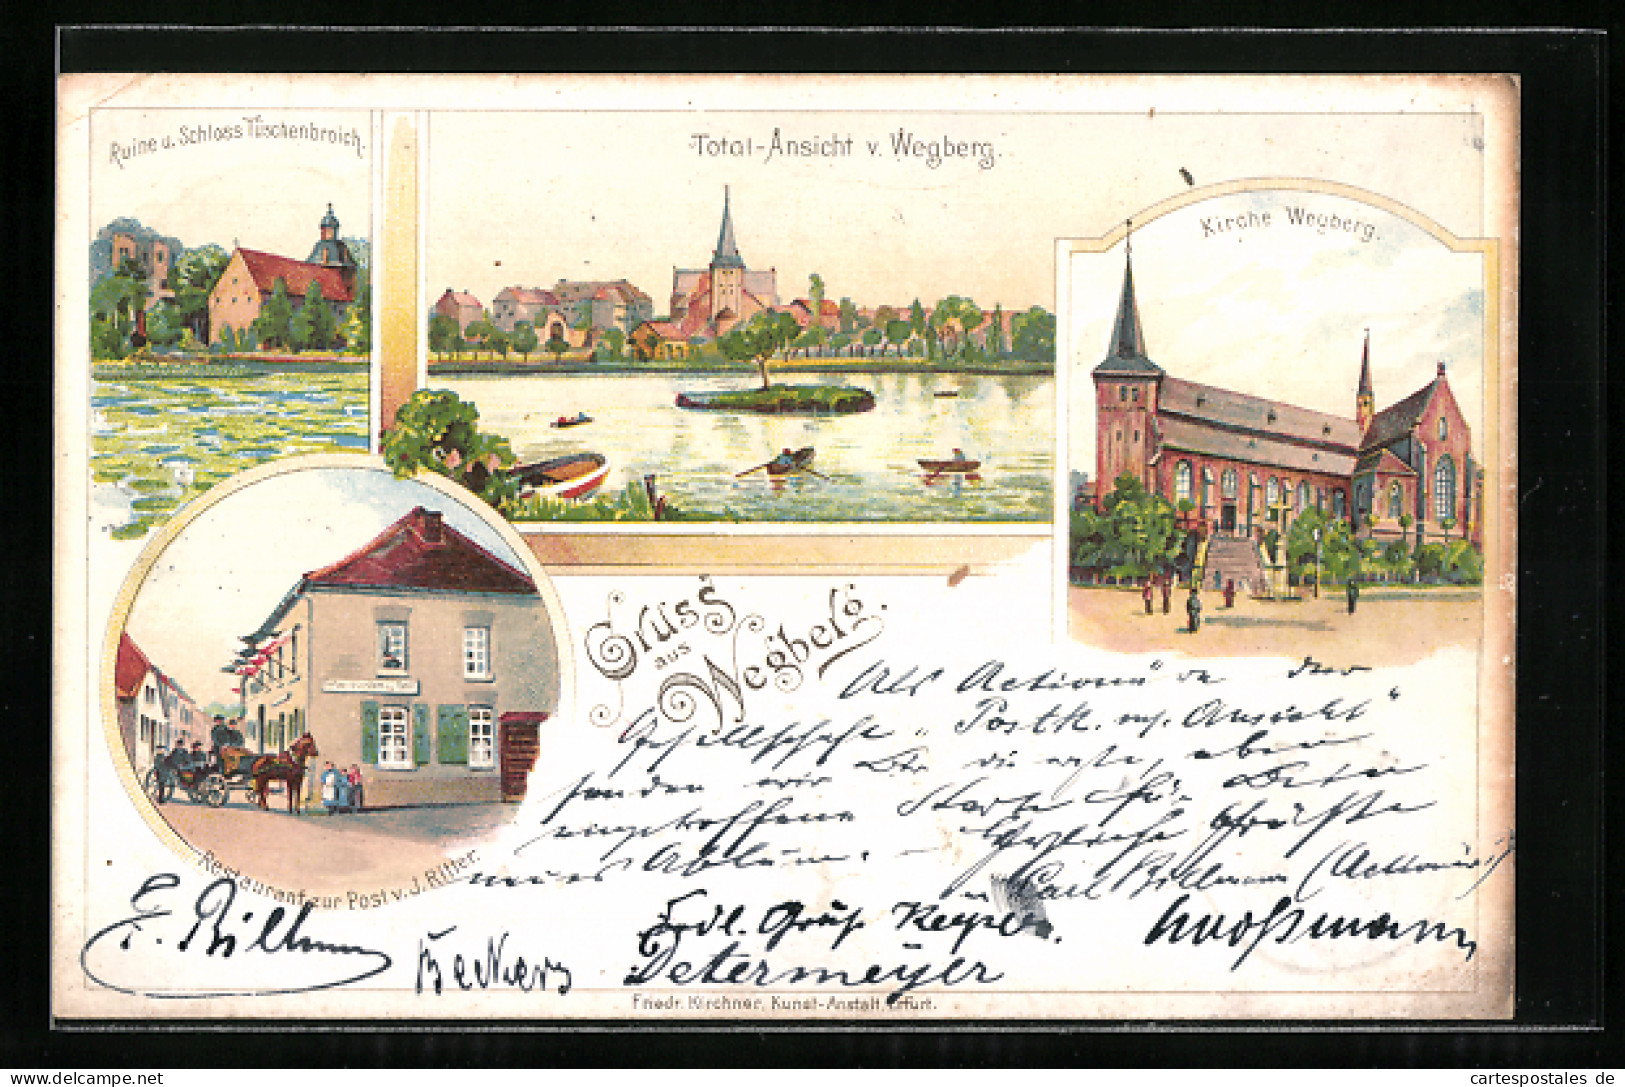 Ruine u. Schloss Tüschenbroich.
Total-Ansicht v. Wegberg.
Kirche Wegberg.
Gruss
aus
Wegberg.
Restaurant zur Post v. J. Ritter.
Als Actionäre der
Gesellschaft „Postk. m. Ansicht“
senden wir die erste, eben
eingetroffene Karte für
neues Album. – Herzliche Grüße
Carl Billmann (Actionär)
F. Billmann
Beckers
Frdl. Gruß
Determeyer
Großmann
Friedr. Kirchner, Kunst-Anstalt, Erfurt.
cartespostales de